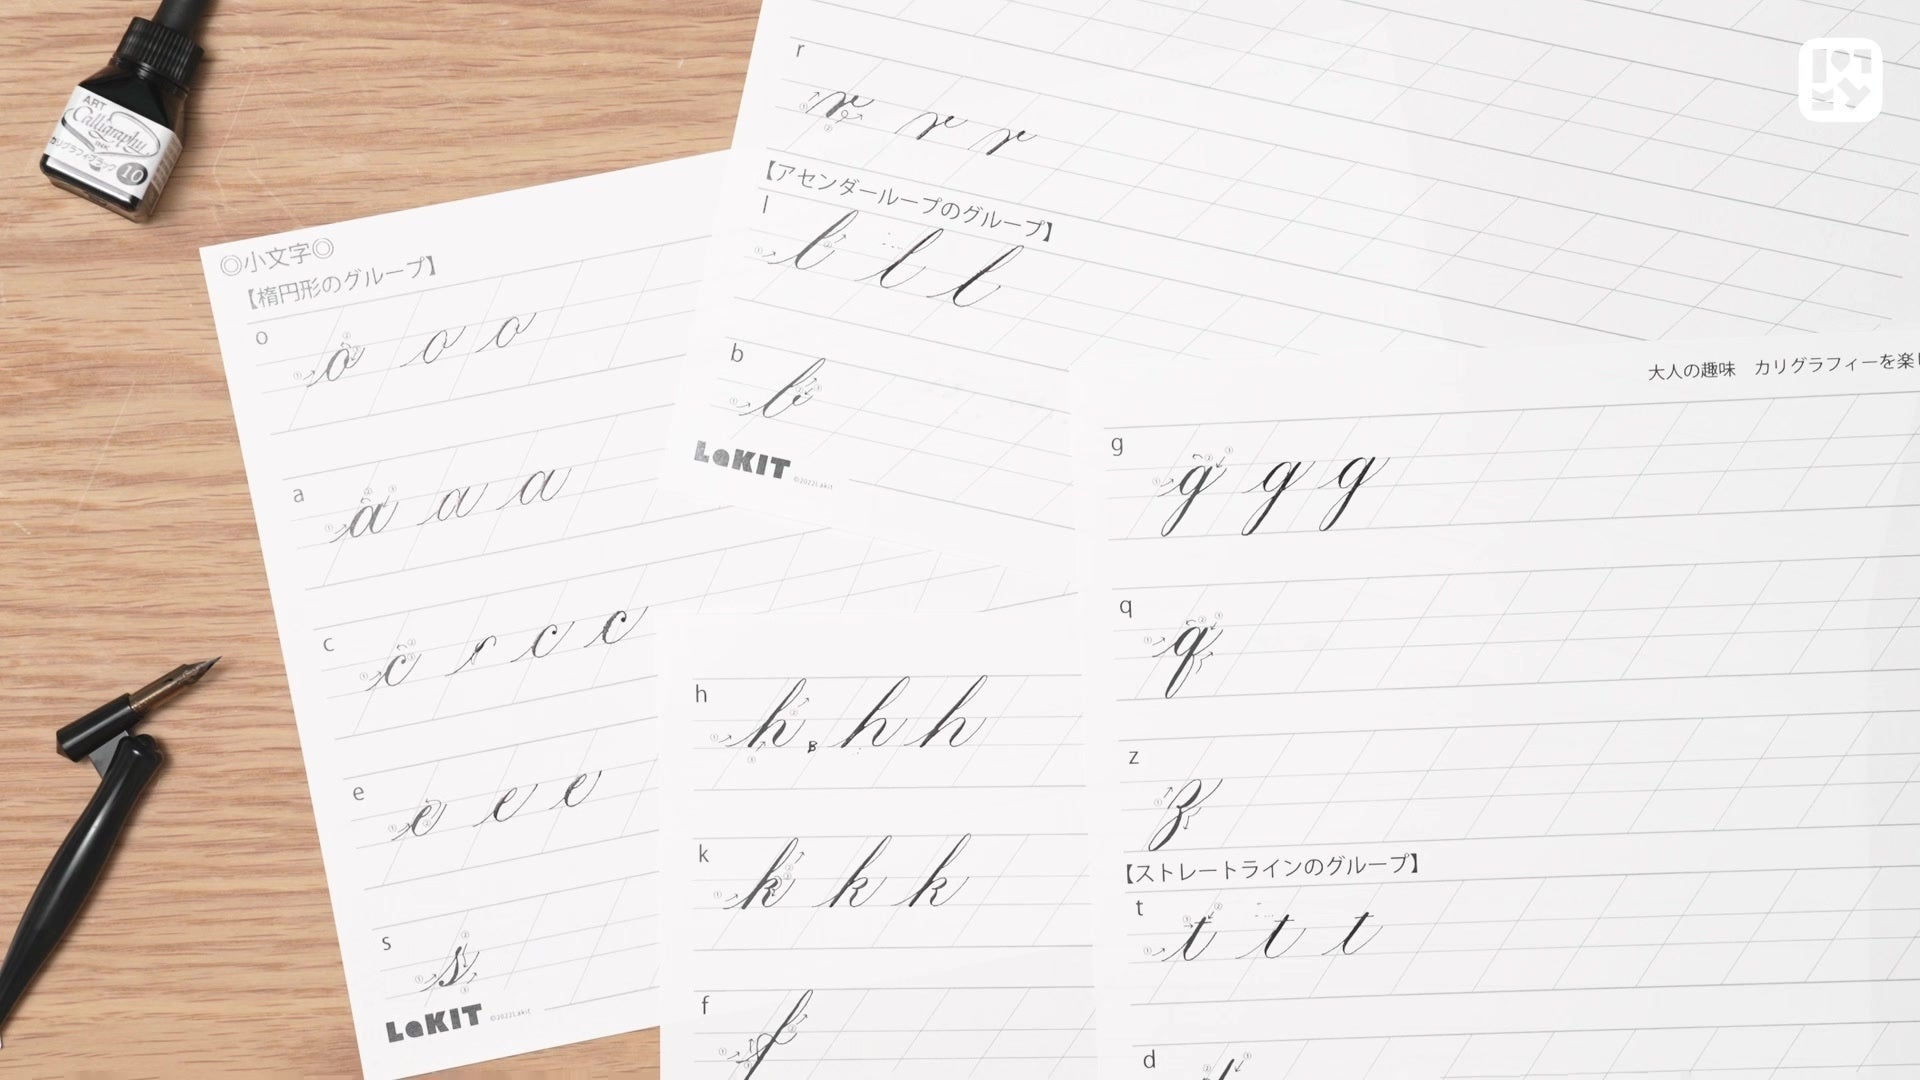 ART
Calligraphy
INK
カリグラフィブラック
10
◎小文字◎
【楕円形のグループ】
o
o o o
a
a a a
c
c c c
e
e e e
s
s
LaKIT
©2022Lakit
r
r r r
【アセンダーループのグループ】
l
l l l
b
b
LaKIT
©2022Lakit
h
h h h
k
k k k
f
f
大人の趣味 カリグラフィーを楽し
g
g g g
q
q
z
z
【ストレートラインのグループ】
t
t t t
d